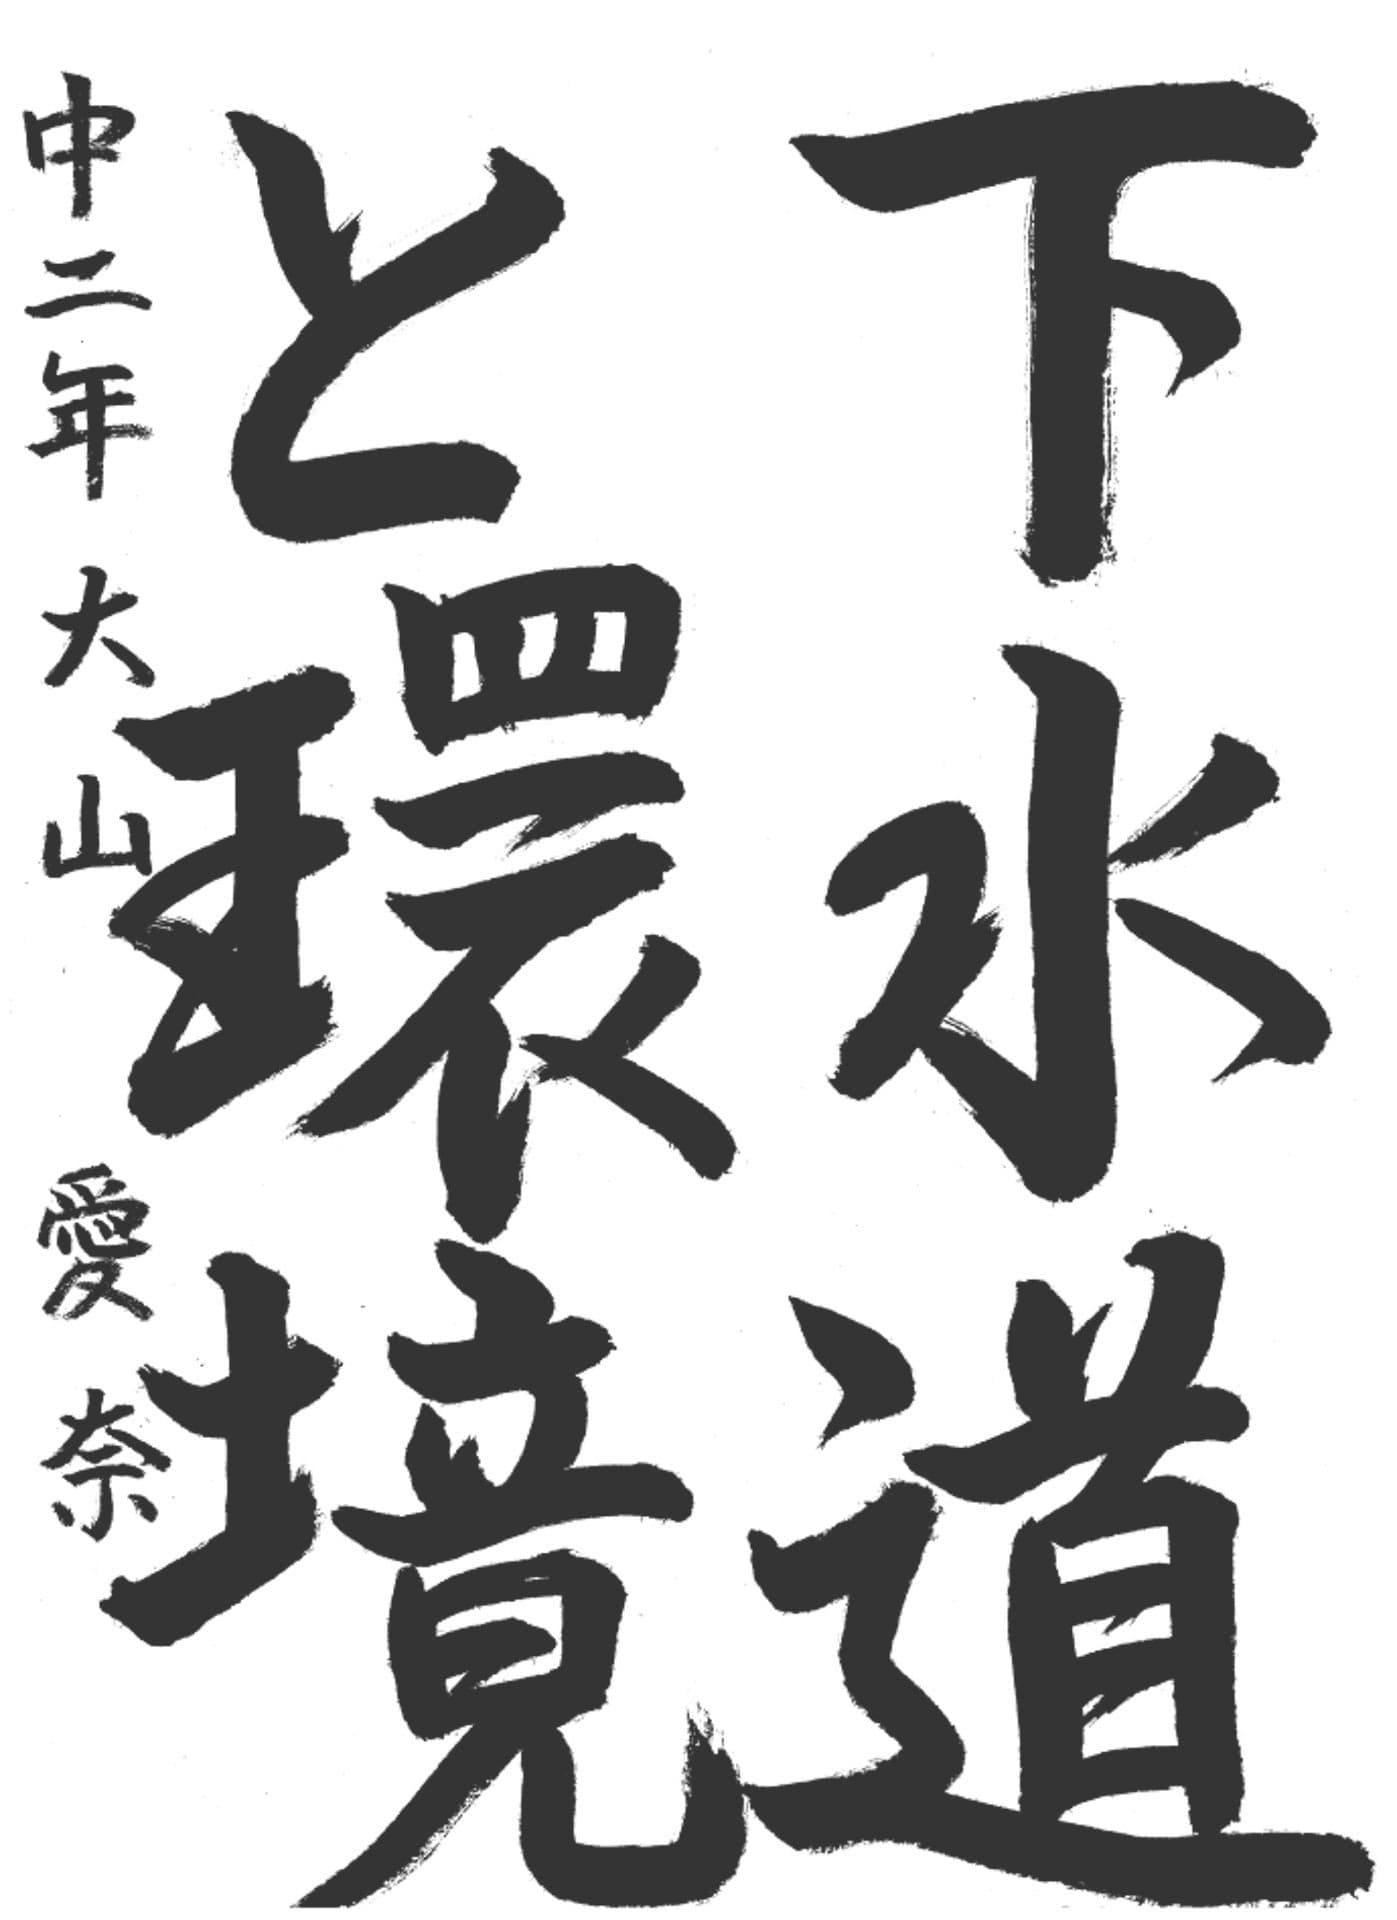 下水道
と環境
中二年 大山 愛奈